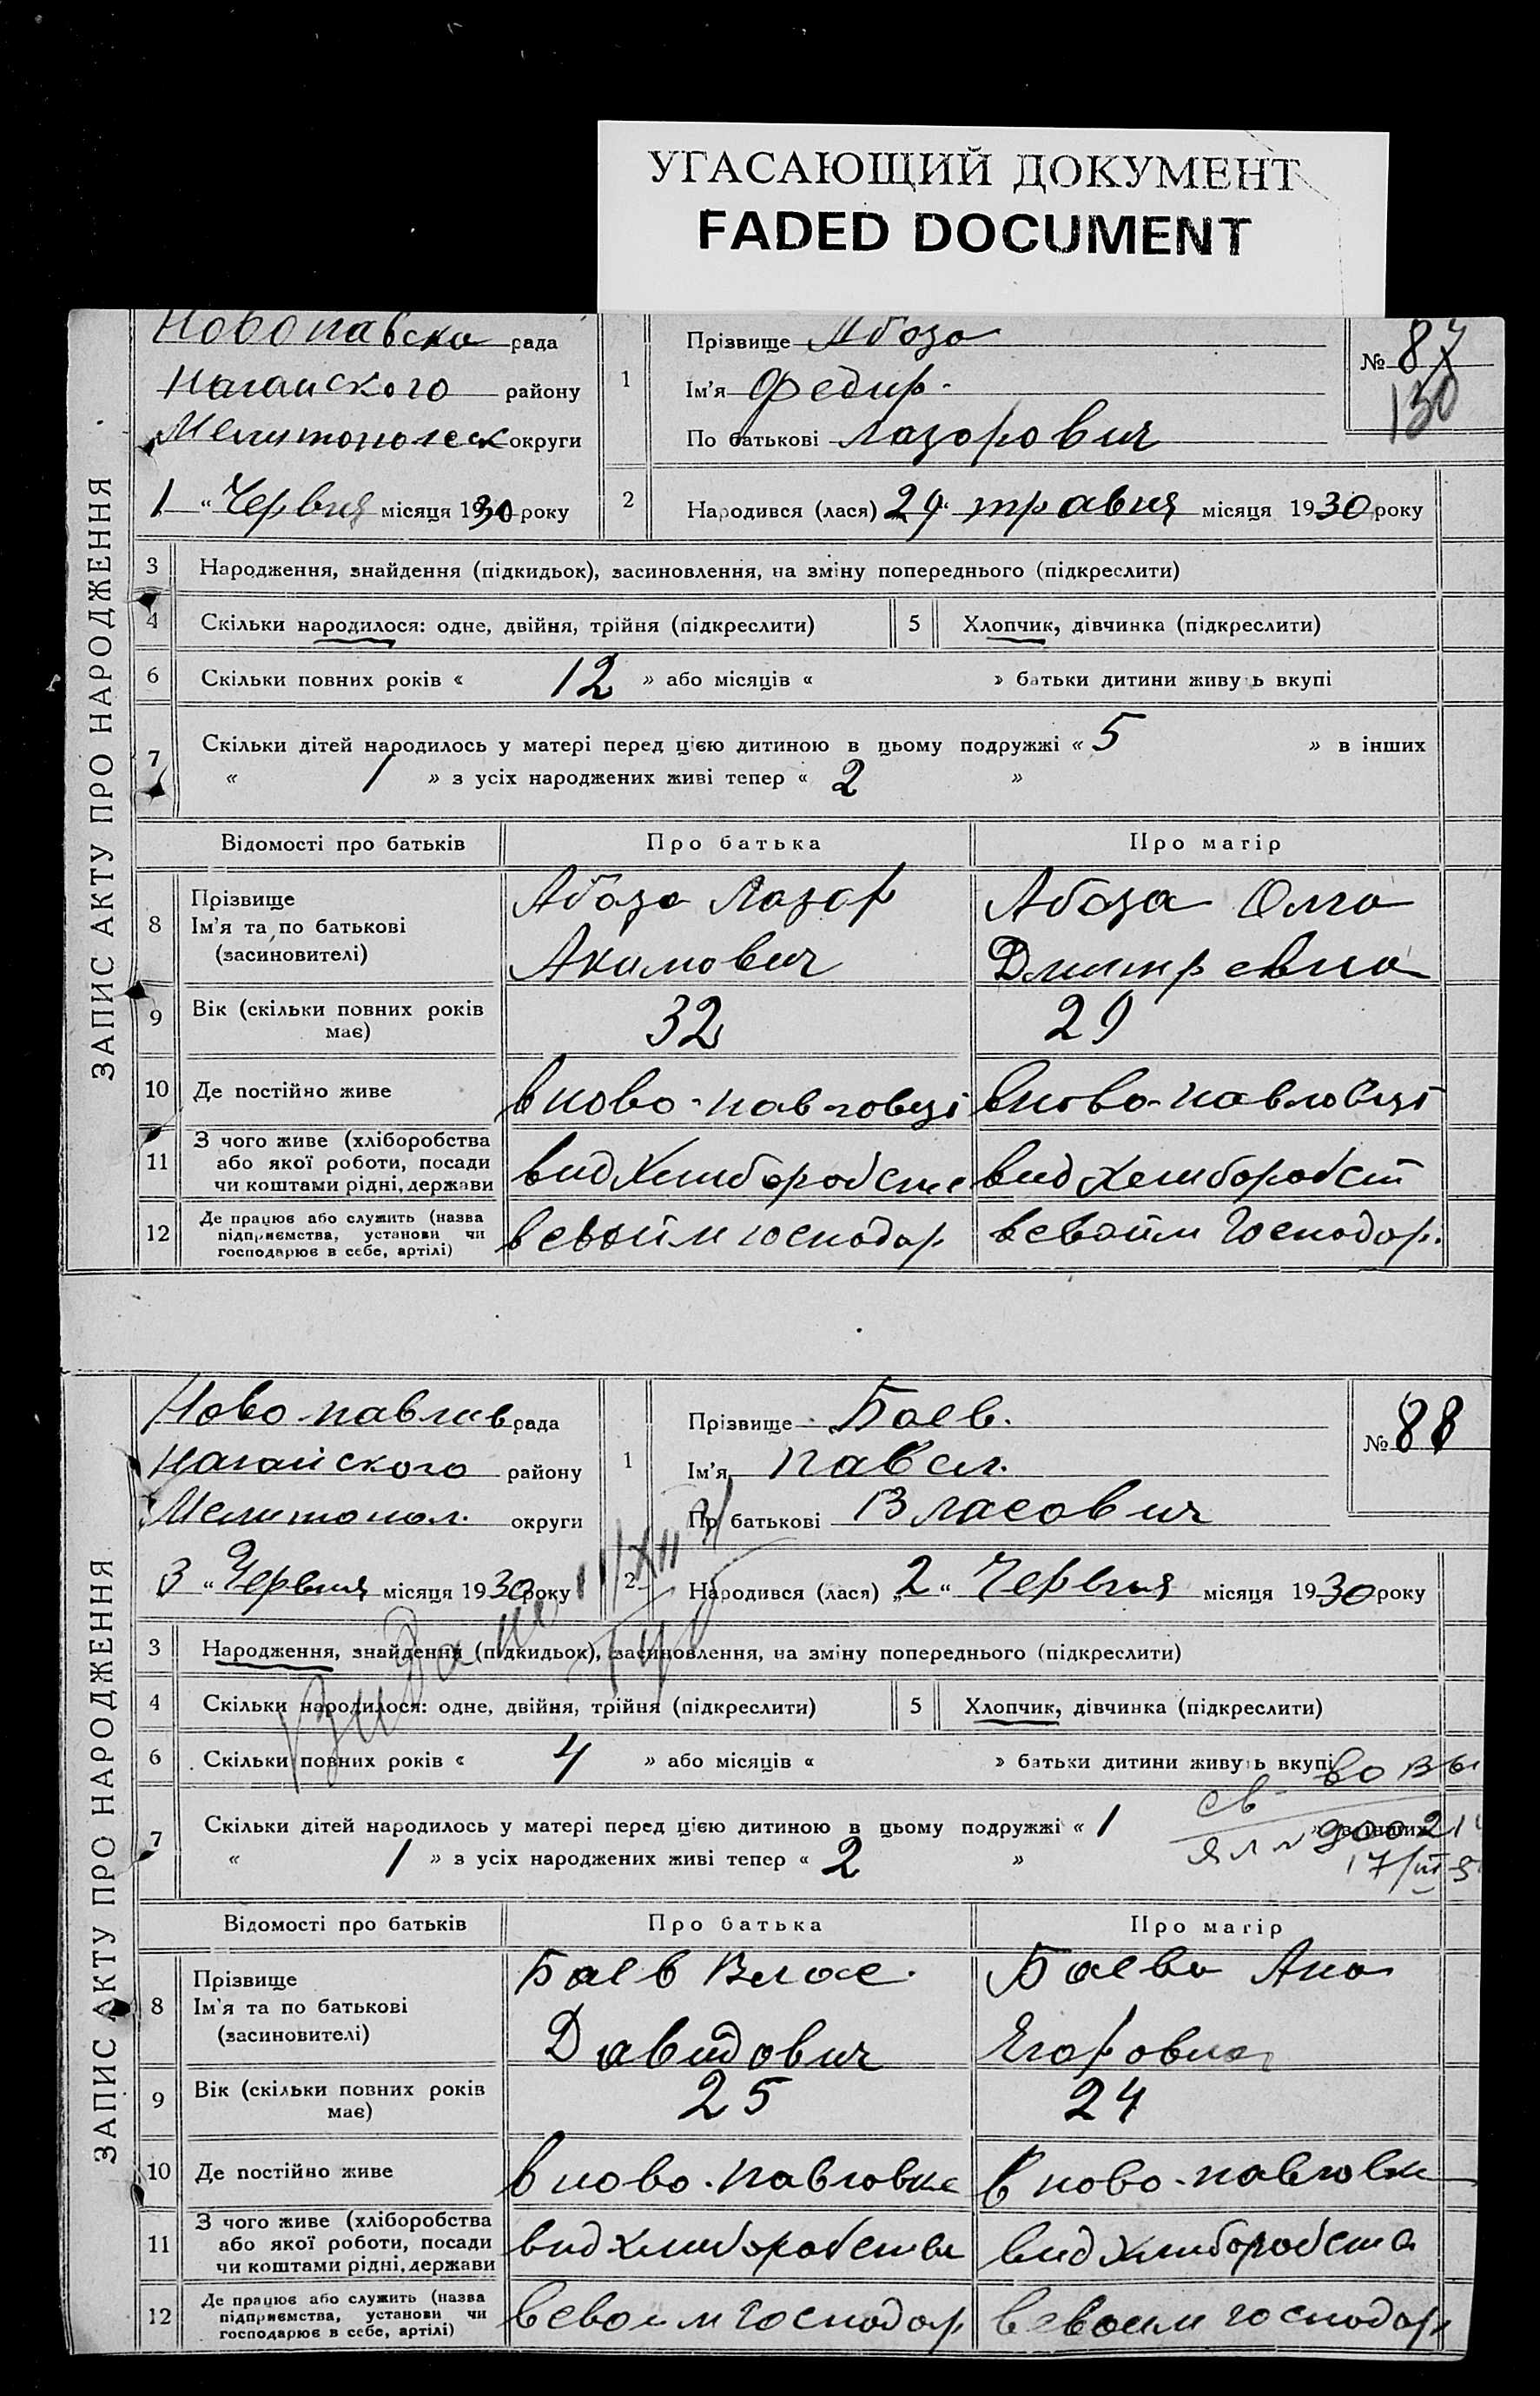 УГАСАЮЩИЙ ДОКУМЕНТ
FADED DOCUMENT
ЗАПИС АКТУ ПРО НАРОДЖЕННЯ
Новопавска рада
Нагайского району
Мелитополск округи
1 " Червня місяця 1930 року
1 Прізвище Абаза
Ім'я Федир.
По батькові Лазорович
№ 87
130
2 Народився (лася) 29 " травня місяця 1930 року
3 Народження, знайдення (підкидьок), засиновлення, на зміну попереднього (підкреслити)
4 Скільки народилося: одне, двійня, трійня (підкреслити) 5 Хлопчик, дівчинка (підкреслити)
6 Скільки повних років « 12 » або місяців « » батьки дитини живуть вкупі
7 Скільки дітей народилось у матері перед цією дитиною в цьому подружжі « 5 » в інших
« 1 » з усіх народжених живі тепер « 2 »
Відомості про батьків Про батька Про матір
8 Прізвище Ім'я та по батькові (засиновителі)
Абаза Лазар Акимович
Абаза Олга Дмитревна
9 Вік (скільки повних років має) 32 29
10 Де постійно живе в ново-павловці в ново-павловці
11 З чого живе (хліборобства або якої роботи, посади чи коштами рідні, держави вид хлиборобств вид хлиборобст
12 Де працює або служить (назва підприємства, установи чи господарює в себе, артілі) в свойм господар в свойм господар.
ЗАПИС АКТУ ПРО НАРОДЖЕННЯ
Ново павлив рада
Нагайского району
Мелитопол. округи
3 " Червня місяця 1930 року
1 Прізвище Баев.
Ім'я Павел.
По батькові Власович
№ 88
2 Народився (лася) „2 " Червня місяця 1930 року
3 Народження, знайдення (підкидьок), засиновлення, на зміну попереднього (підкреслити)
4 Скільки народилося: одне, двійня, трійня (підкреслити) 5 Хлопчик, дівчинка (підкреслити)
6 Скільки повних років « 4 » або місяців « » батьки дитини живуть вкупі
7 Скільки дітей народилось у матері перед цією дитиною в цьому подружжі « 1 » в інших
« 1 » з усіх народжених живі тепер « 2 »
Відомості про батьків Про батька Про матір
8 Прізвище Ім'я та по батькові (засиновителі)
Баев Влас. Давидович
Баева Ана Егоровна
9 Вік (скільки повних років має) 25 24
10 Де постійно живе в ново-павловке в ново-павловке
11 З чого живе (хліборобства або якої роботи, посади чи коштами рідні, держави вид хлиборобства вид хлиборобства
12 Де працює або служить (назва підприємства, установи чи господарює в себе, артілі) в своем господар в своем господар